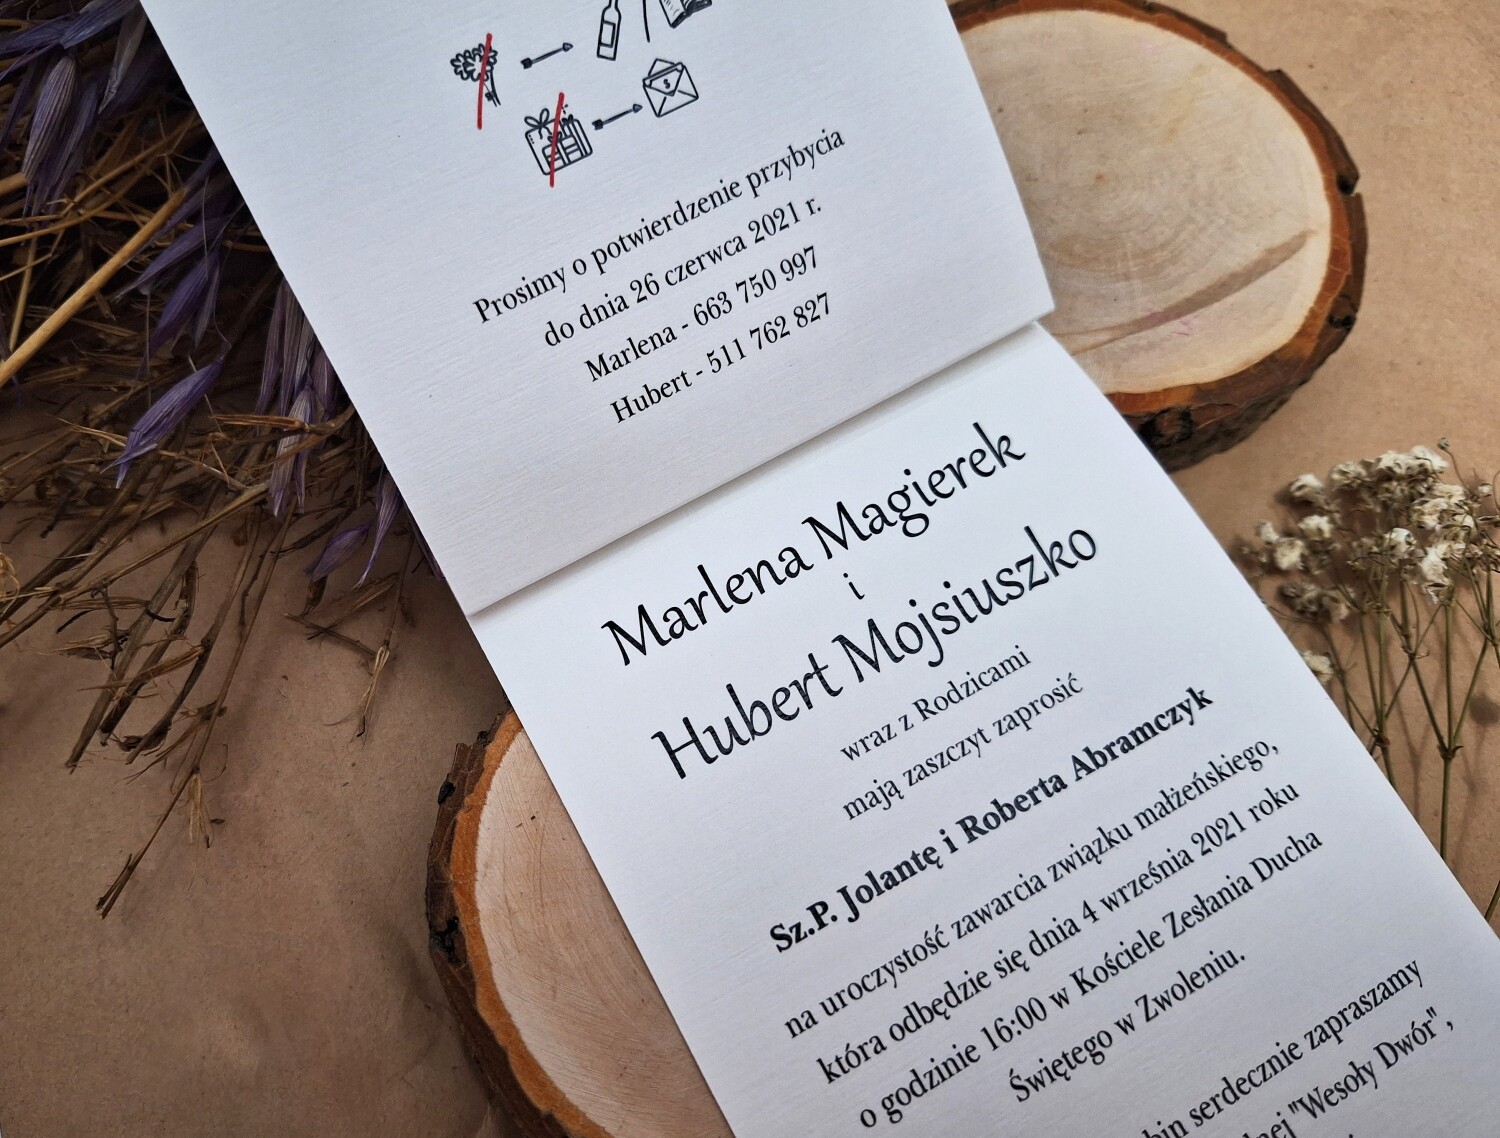 Prosimy o potwierdzenie przybycia
do dnia 26 czerwca 2021 r.
Marlena - 663 750 997
Hubert - 511 762 827
Marlena Magierek
i
Hubert Mojsiuszko
wraz z Rodzicami
mają zaszczyt zaprosić
Sz.P. Jolantę i Roberta Abramczyk
na uroczystość zawarcia związku małżeńskiego,
która odbędzie się dnia 4 września 2021 roku
o godzinie 16:00 w Kościele Zesłania Ducha
Świętego w Zwoleniu.
serdecznie zapraszamy
"Wesoły Dwór",